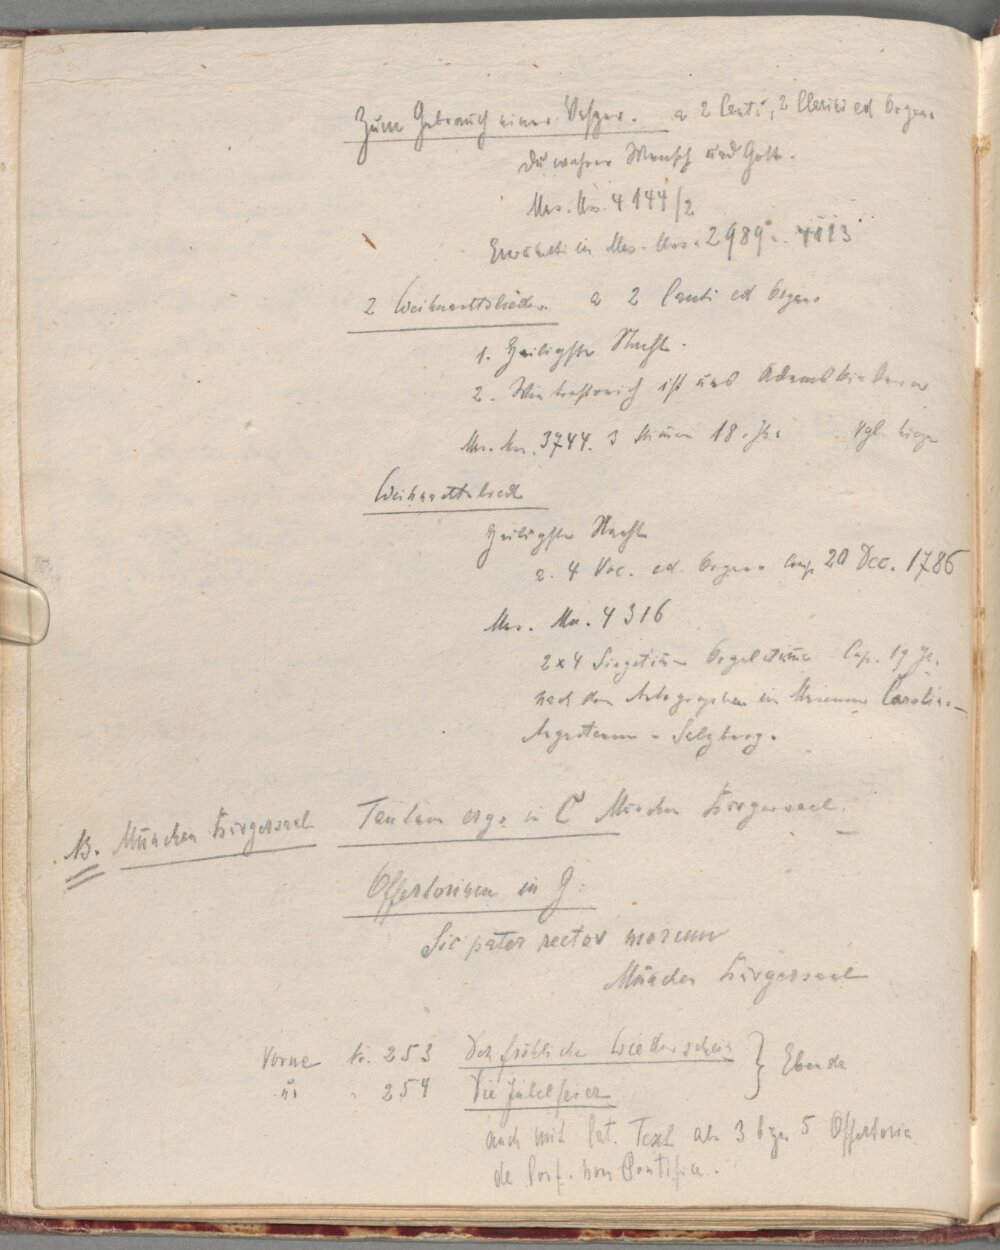 Zum Gebrauch einer Vesper. a 2 Canti, 2 Clarini ed Organo
Du wahrer Mensch und Gott.
Mus. Mss. 4144/2
Erwähnt in Mus. Mss. 2989 u. 4113
2 Weihnachtslieder a 2 Canti ed Organo
1. Heiligste Nacht.
2. Wie trostreich ist uns Adamskindern
Mus. Mss. 3744. 3 Stimmen 18. Jh.
Vgl.
Weihnachtslied
Heiligste Nacht
a. 4 Voc. ed. Organo comp. 20 Dec. 1786
Mus. Ms. 4316
2x4 Singstimm Orgelstimme Cop. 19 Jh.
nach dem Autographen im Museum Carolino-
Augusteum - Salzburg.
NB. München Bürgersaal Tantum ergo in C München Bürgersaal.
Offertorium in G.
Sic pater rector morum
München Bürgersaal
Vorne Nr. 253 Der fröhliche Wiederschein } Ebenda
u. " 254 Die Jubelfeier
auch mit lat. Text als 3 bzw 5 Offertoria
de Conf. non Pontifice.